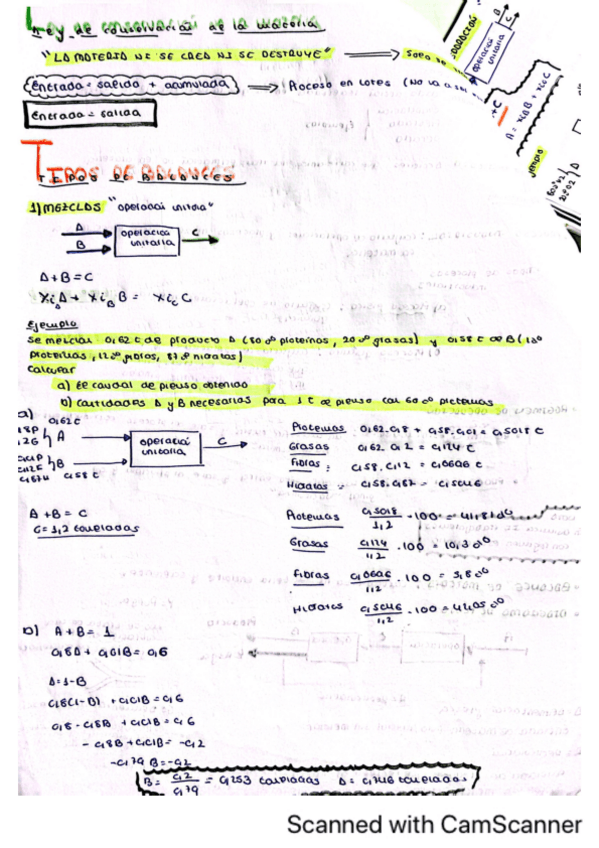 Ley de conservación de la materia
"LA MATERIA NI SE CREA NI SE DESTRUYE"
Entrada = salida + acumulada → Proceso en lotes (No va a
Entrada = salida
operación unitaria
A = XiB B + XiC C
TIPOS DE BALANCES
1) MEZCLAS "operación unitaria"
A
B
operación unitaria
C
A+B=C
XiA A + XiB B = XiC C
Ejemplo
Se mezclan 0,62 t de producto A (80% proteínas, 20% grasas) y 0,58 t de B (1%
proteínas, 12% fibras, 87% hidratos)
Calcular
a) El caudal de pienso obtenido
b) Cantidades A y B necesarias para 1 t de pienso con 60% proteínas
a)
0,62 t
A
B
0,58 t
operación unitaria
C
A+B=C
C=1,2 toneladas
Proteínas: 0,62·0,8 + 0,58·0,01 = 0,5018 t
Grasas 0,62·0,2 = 0,124 t
Fibras: 0,58·0,12 = 0,0696 t
Hidratos: 0,58·0,87 = 0,5046
Proteínas 0,5018/1,2 · 100 = 41,8%
Grasas 0,124/1,2 · 100 = 10,3%
Fibras 0,0696/1,2 · 100 = 5,8%
Hidratos 0,5046/1,2 · 100 = 42,05%
b) A+B = 1
0,8A + 0,01B = 0,6
A=1-B
0,8(1-B) + 0,01B = 0,6
0,8 - 0,8B + 0,01B = 0,6
- 0,8B + 0,01B = -0,2
-0,79 B = -0,2
B = 0,2/0,79 = 0,253 toneladas A = 0,746 toneladas
Scanned with CamScanner